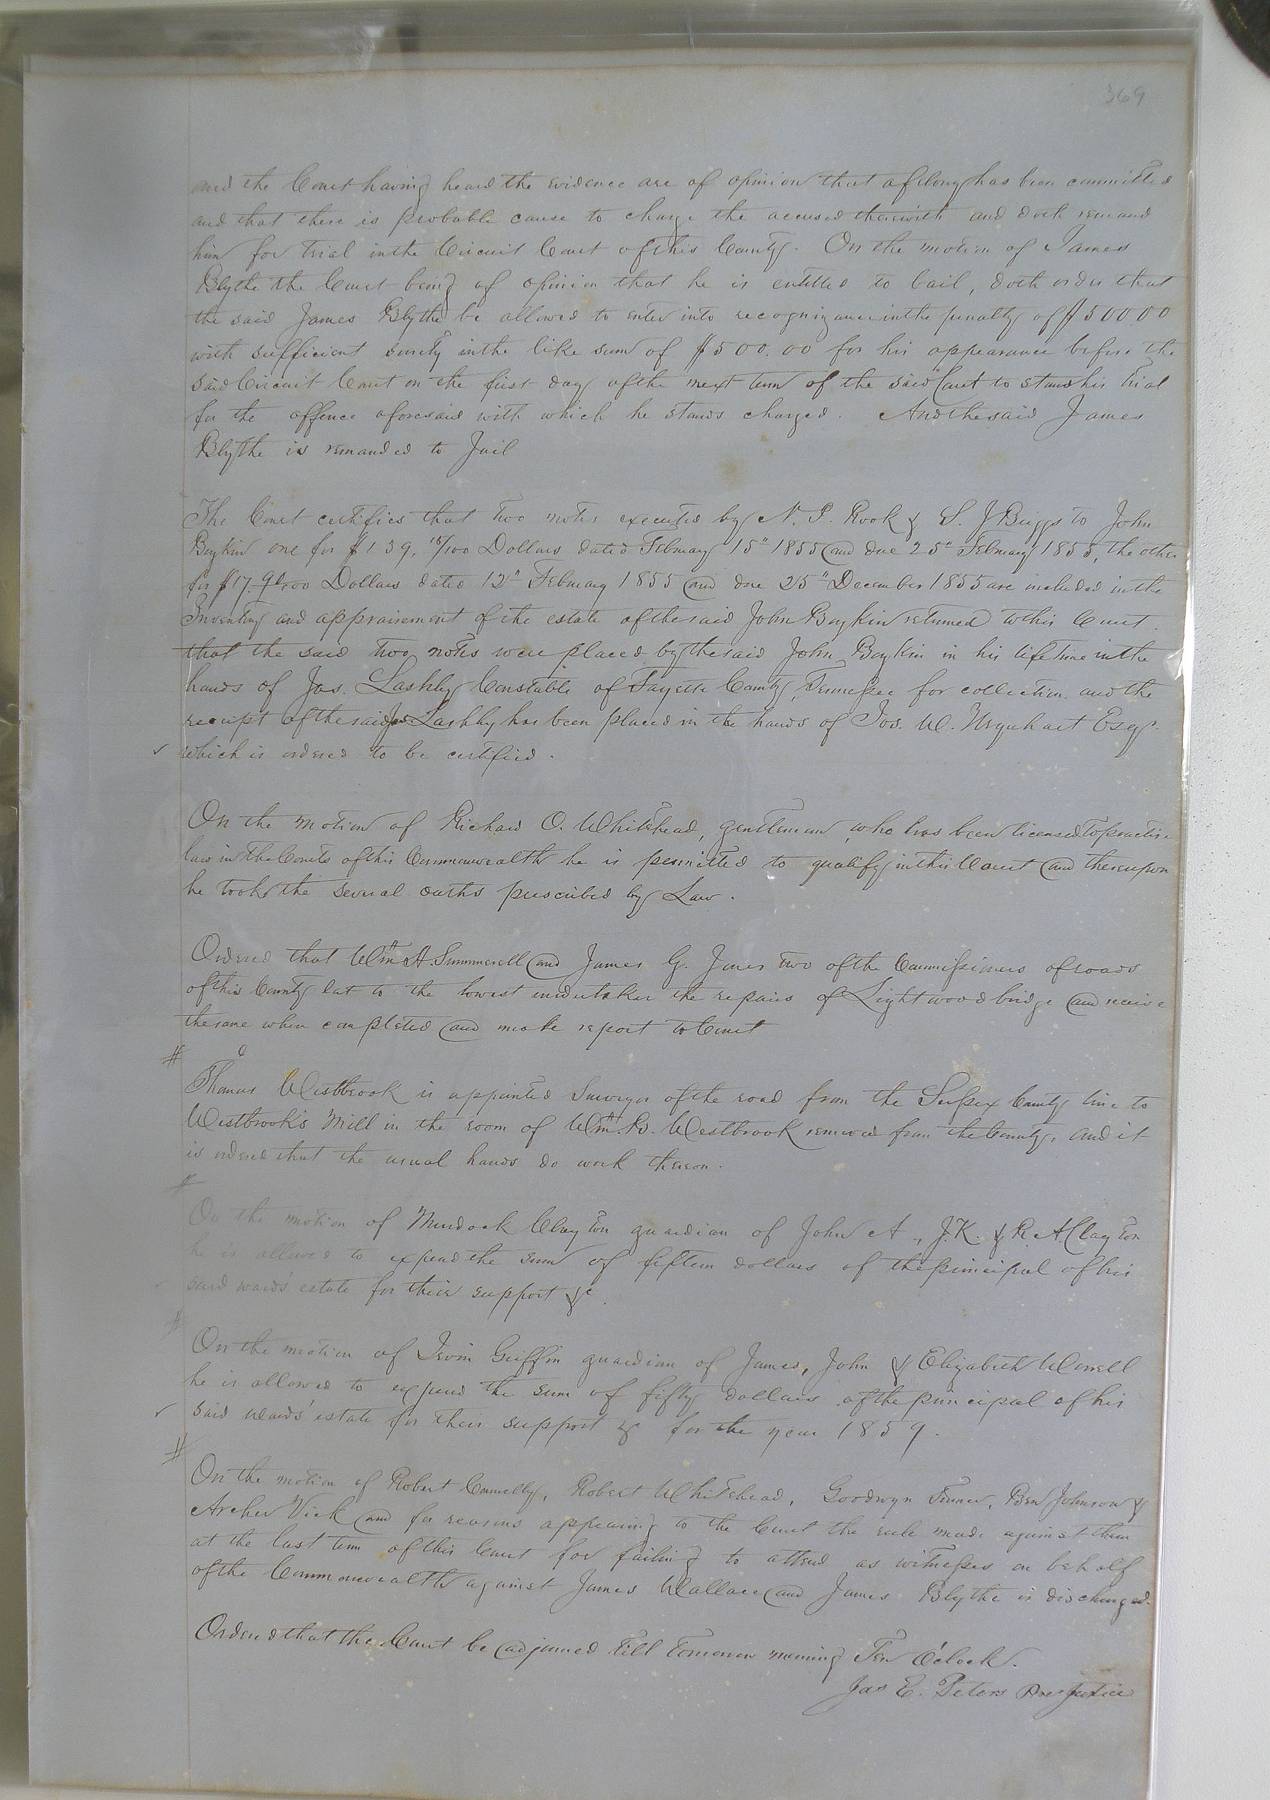 369
and the Court having heard the evidence are of opinion that a felony has been committed
and that there is probable cause to charge the accused therewith and doth remand
him for trial in the Circuit Court of this County. On the motion of James
Blythe the Court being of opinion that he is entitled to bail, doth order that
the said James Blythe be allowed to enter into recognizance in the penalty of $500 00
with sufficient surety in the like sum of $500.00 for his appearance before the
said Circuit Court on the first day of the next term of the said Court to stand his trial
for the offence aforesaid with which he stands charged. And the said James
Blythe is remanded to Jail
The Court certifies that two notes executed by N. P. Rook & S. J Biggs to John
Boykin one for $139, 18/100 Dollars dated February 15" 1855 and due 25" February 1855, the other
for Dollars dated 12" February 1855 and due 25" December 1855 are included in the
Inventory and appraisement of the estate of the said John Boykin returned to this Court
that the said two notes were placed by the said John Boykin in his lifetime in the
hands of Jas. Lashly Constable of Fayette County, Tennessee for collection and the
receipt of the said Jas Lashly has been placed in the hands of Jos. W. Urquhart Esqr.
which is ordered to be certified.
On the motion of Richard O. Whitehead, gentleman, who has been licensed to practise
law in the Courts of this Commonwealth he is permitted to qualify in this Court and thereupon
he took the several oaths prescribed by Law.
Ordered that Wm A. Summerell and James G. Jones two of the Commissioners of roads
of this County let to the lowest undertaker the repairs of Lightwood bridge and receive
the same when completed and make report to Court
#
Thomas Westbrook is appointed Surveyor of the road from the Sussex County line to
Westbrook's Mill in the room of Wm. B. Westbrook removed from the County, and it
is ordered that the usual hands do work thereon.
#
On the motion of Murdock Clayton guardian of John A., J.K. & R. A Clayton
he is allowed to expend the sum of fifteen dollars of the principal of his
said wards' estate for their support &c.
#
On the motion of Irvin Griffin guardian of James, John & Elizabeth Worrell
he is allowed to expend the sum of fifty dollars of the principal of his
said wards' estate for their support & for the year 1859.
#
On the motion of Robert Connelly, Robert Whitehead, Goodwyn Turner, Ben Johnson &
Archer Vick and for reasons appearing to the Court the rule made against them
at the last term of this Court for failing to attend as witnesses on behalf
of the Commonwealth against James Wallace and James Blythe is discharged.
Ordered that the Court be adjourned till tomorrow morning Ten O'clock.
Jas E. Peters Pres Justice